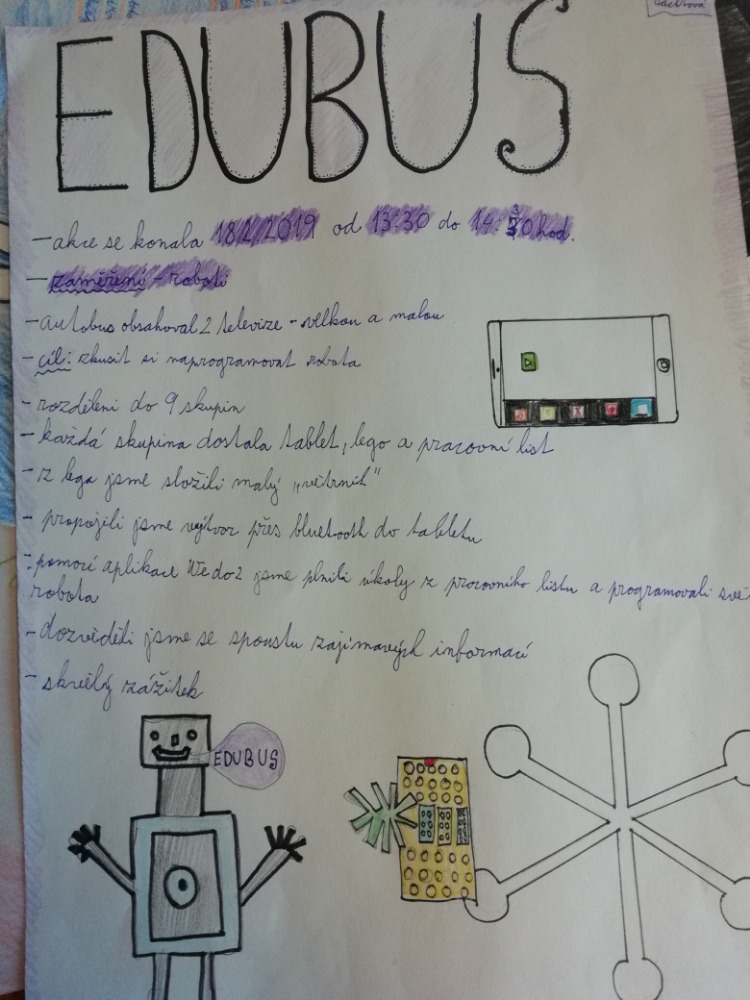 EDUBUS
- akce se konala 18.2.2019 od 13:30 do 14:30 hod.
- zaměření - roboti
- autobus obsahoval 2 televize - velkou a malou
- cíl: zkusit si naprogramovat robota
- rozděleni do 9 skupin
- každá skupina dostala tablet, lego a pracovní list
- z lega jsme složili malý „větrník"
- propojili jsme výtvor přes bluetooth do tabletu
- pomocí aplikace WeDo2 jsme plnili úkoly z pracovního listu a programovali své
robota
- dozvěděli jsme se spoustu zajímavých informací
- skvělý zážitek
EDUBUS